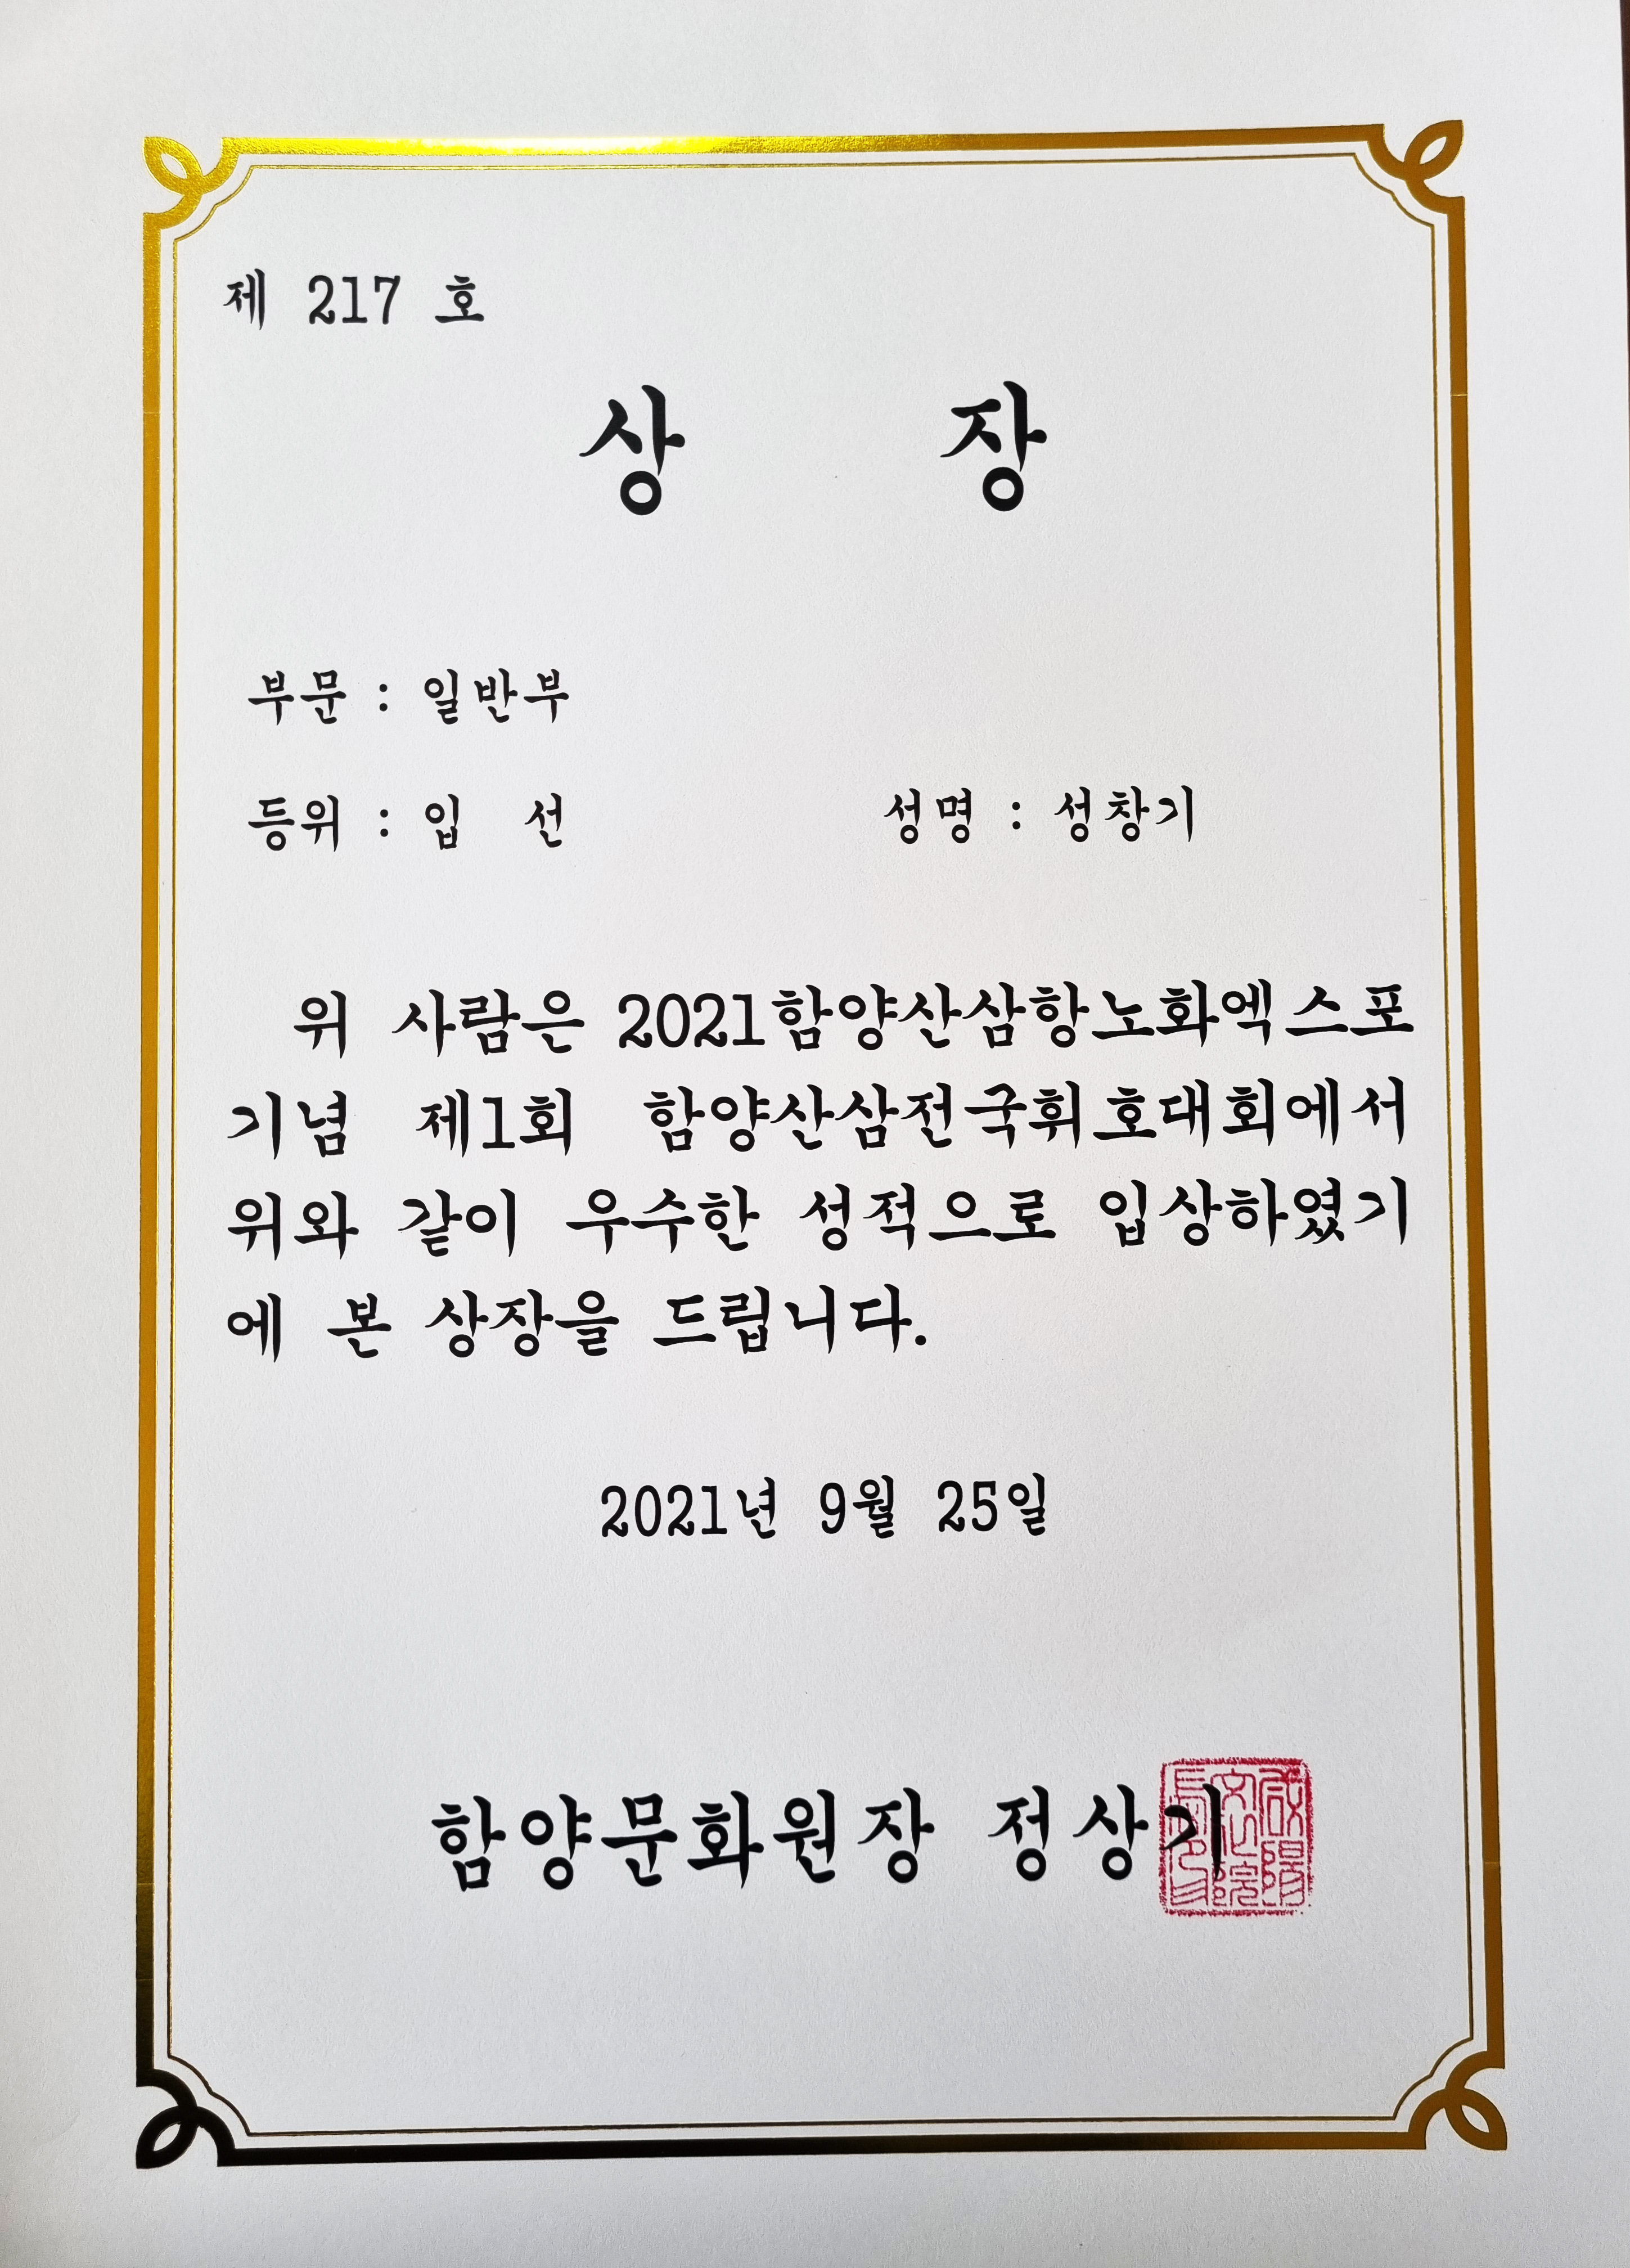 제 217 호
상 장
부문 : 일반부
등위 : 입 선 성명 : 성창기
위 사람은 2021함양산삼항노화엑스포
기념 제1회 함양산삼전국휘호대회에서
위와 같이 우수한 성적으로 입상하였기
에 본 상장을 드립니다.
2021년 9월 25일
함양문화원장 정상기